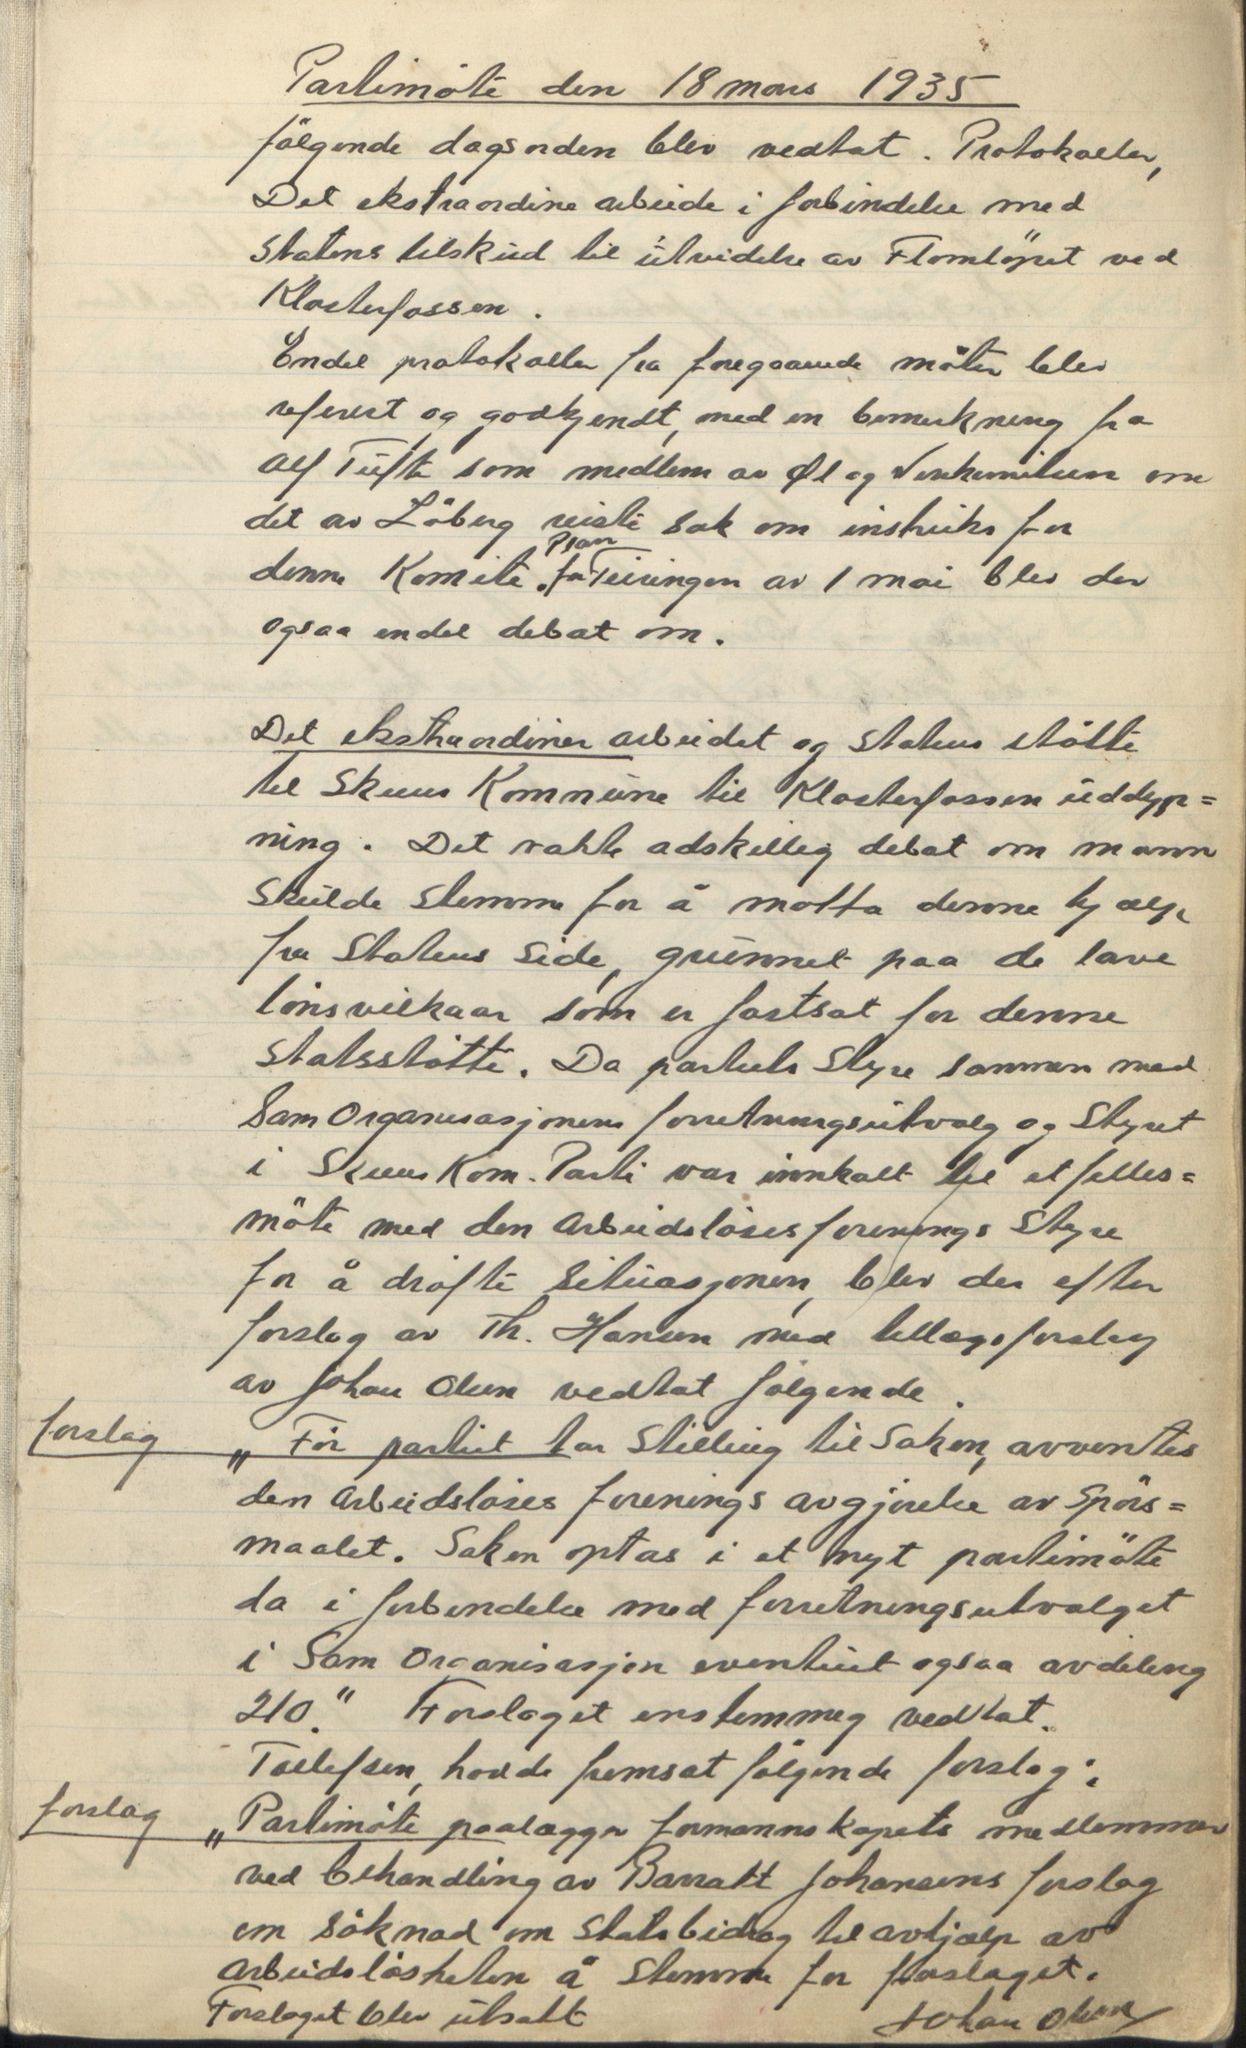 Partimöte den 18 mars 1935
følgende dagsorden blev vedtat. Protokoller,
Det ekstraordine arbeide i forbindelse med
Statens tilskud til utvidelse av Flomløpet ved
Klosterfossen.
Endel protokoller fra foregaaende möter blev
referert og godkjendt, med en bemerkning fra
Alf Tufte som medlem av Øl og Vinkomiteen om
det av Löberg reiste sak om instruks for
Plan
denne Komite. for Feiringen av 1 mai blev der
ogsaa endel debat om.
Det ekstraordinær arbeidet og Statens støtte
til Skiens Kommune til Klosterfossen uddyp=
ning. Det vakte adskillig debat om mann
Skulde Stemme for å motta denne hjælp
fra Statens Side, grunnet paa de lave
lönsvilkaar som er fastsat for denne
Statsstøtte. Da partiets Styre sammen med
Sam Organisasjonens forretningsutvalg og Styret
i Skiens Kom. Parti var innkalt til et felles=
möte med den Arbeidsløses forenings Styre
for å drøfte Situasjonen, blev der efter
forslag av Th. Hansen med tillægsforslag
av Johan Olsen vedtat følgende.
forslag
„Før partiet tar Stilling til Saken, avventes
den Arbeidsløses forenings avgjørelse av Spörs=
maalet. Saken optas i et nyt partimöte
da i forbindelse med forretningsutvalget
i Sam Organisasjon eventuelt ogsaa avdeling
210." Forslaget enstemmig vedtat.
Tollefsen, hadde fremsat følgende forslag:
forslag
„Partimöte paalægger formannskapets medlemmer
ved behandling av Barratt Johansens forslag
om Söknad om Statsbidrag til avhjælp av
Arbeidslösheten å Stemme for forslaget.
Forslaget blev utsatt
Johan Olsen